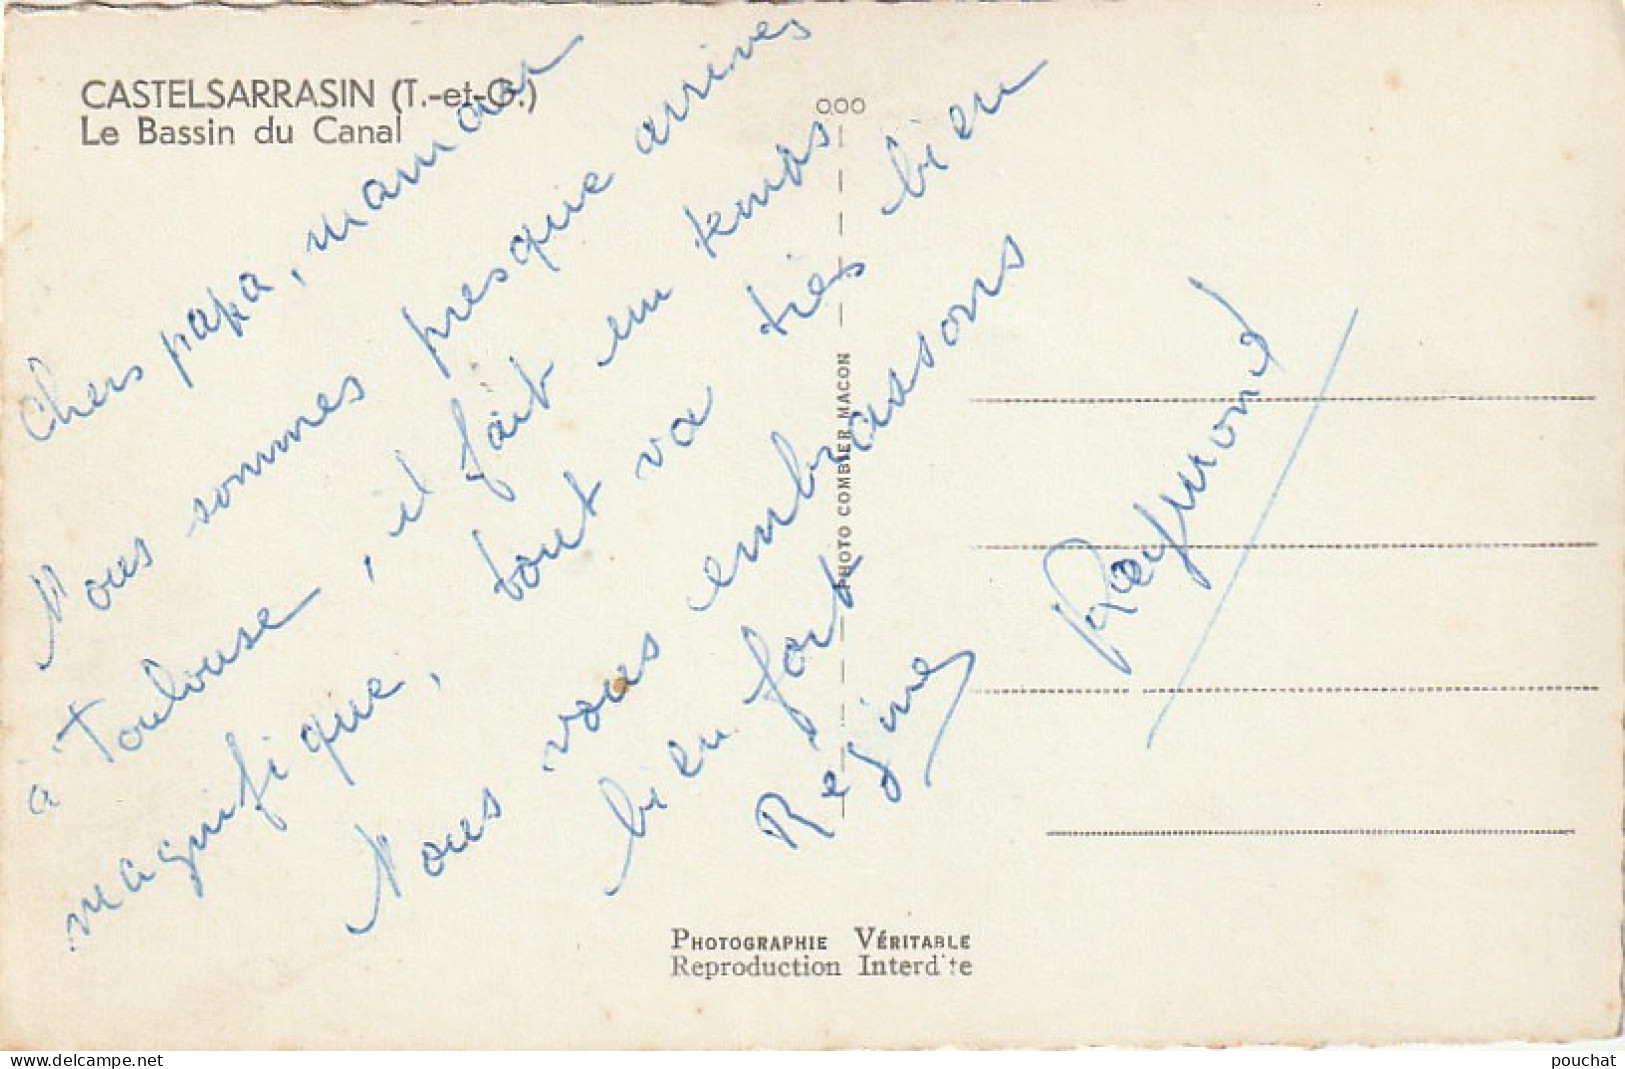 CASTELSARRASIN (T.-et-G.)
Le Bassin du Canal
Chers papa, maman
Nous sommes presque arrives
à Toulouse, il fait un temps
magnifique, tout va très bien
Nous vous embrassons
bien fort
Régine
Raymond
000
PHOTO COMBIER MACON
PHOTOGRAPHIE VÉRITABLE
Reproduction Interdite
delcampe.net
pouchat